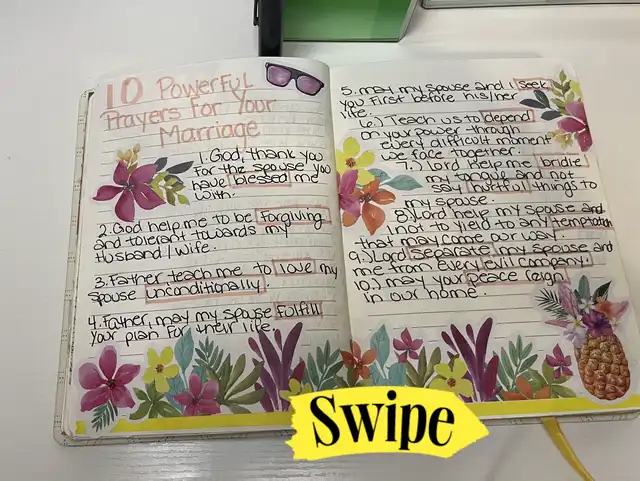 10 Powerful
Prayers For Your
Marriage
1. God, thank you
for the spouse you
have blessed me
with.
2. God help me to be Forgiving
and tolerant towards my
Husband/wife.
3. Father teach me to love my
spouse unconditionally.
4. Father, may my spouse Fulfill
your plan for their life.
5. may my spouse and I seek
you First before his/her
life.
6.) Teach us to depend
on your power through
every difficult moment
we face together.
7.) Lord help me bridle
my tongue and not
say hutful things to
my spouse.
8.) Lord help my spouse and
I not to yield to any temptation
that may come our way.
9.) Lord separate my spouse and
me from every evil company.
10.) may your peace reign
in our home.
Swipe